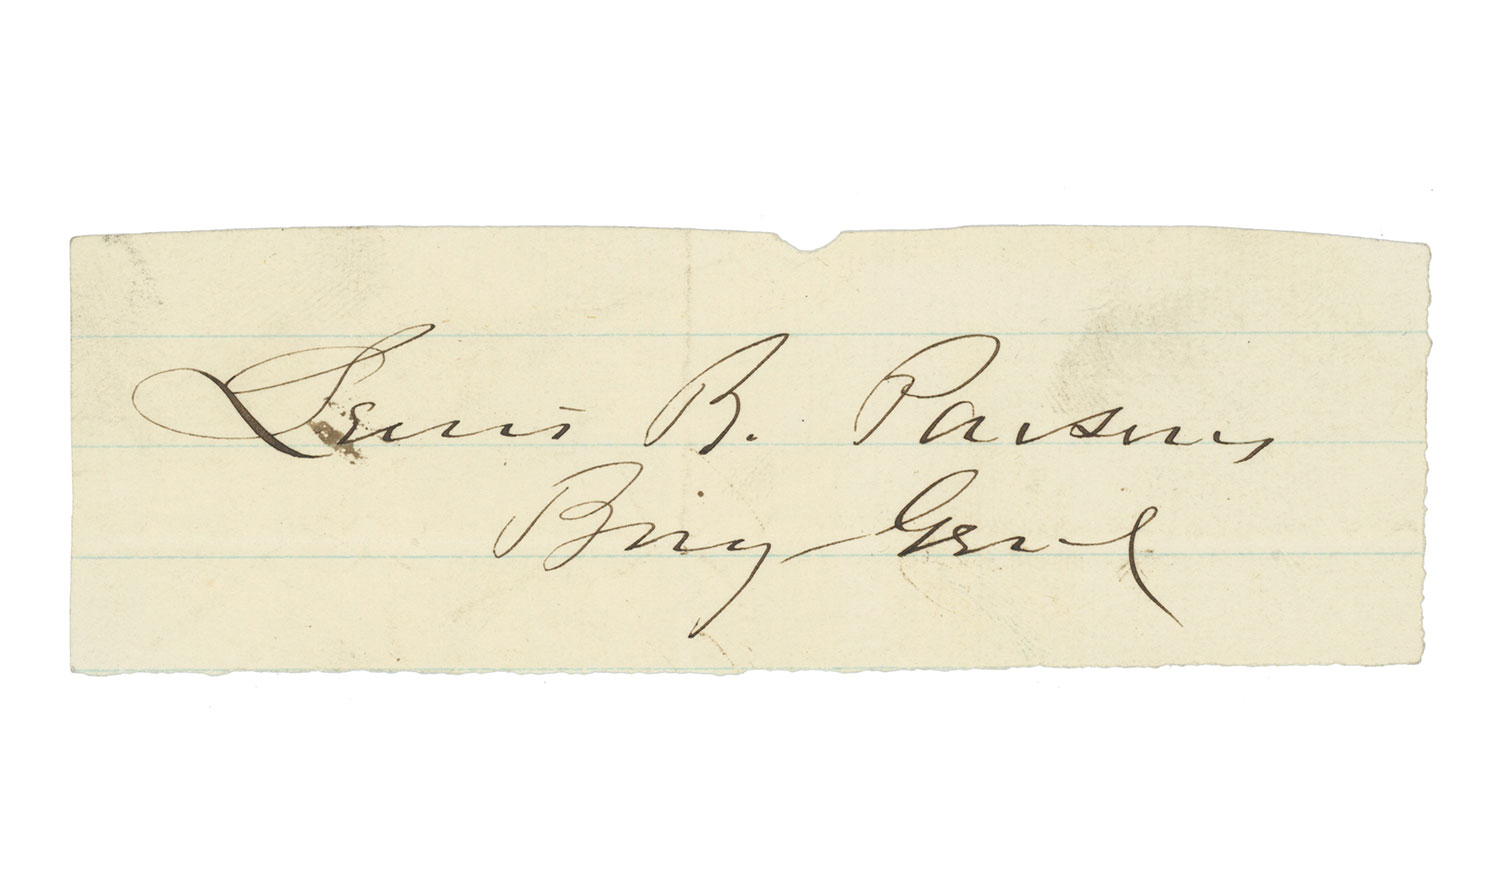 Lewis B. Parsons
Brig Genl